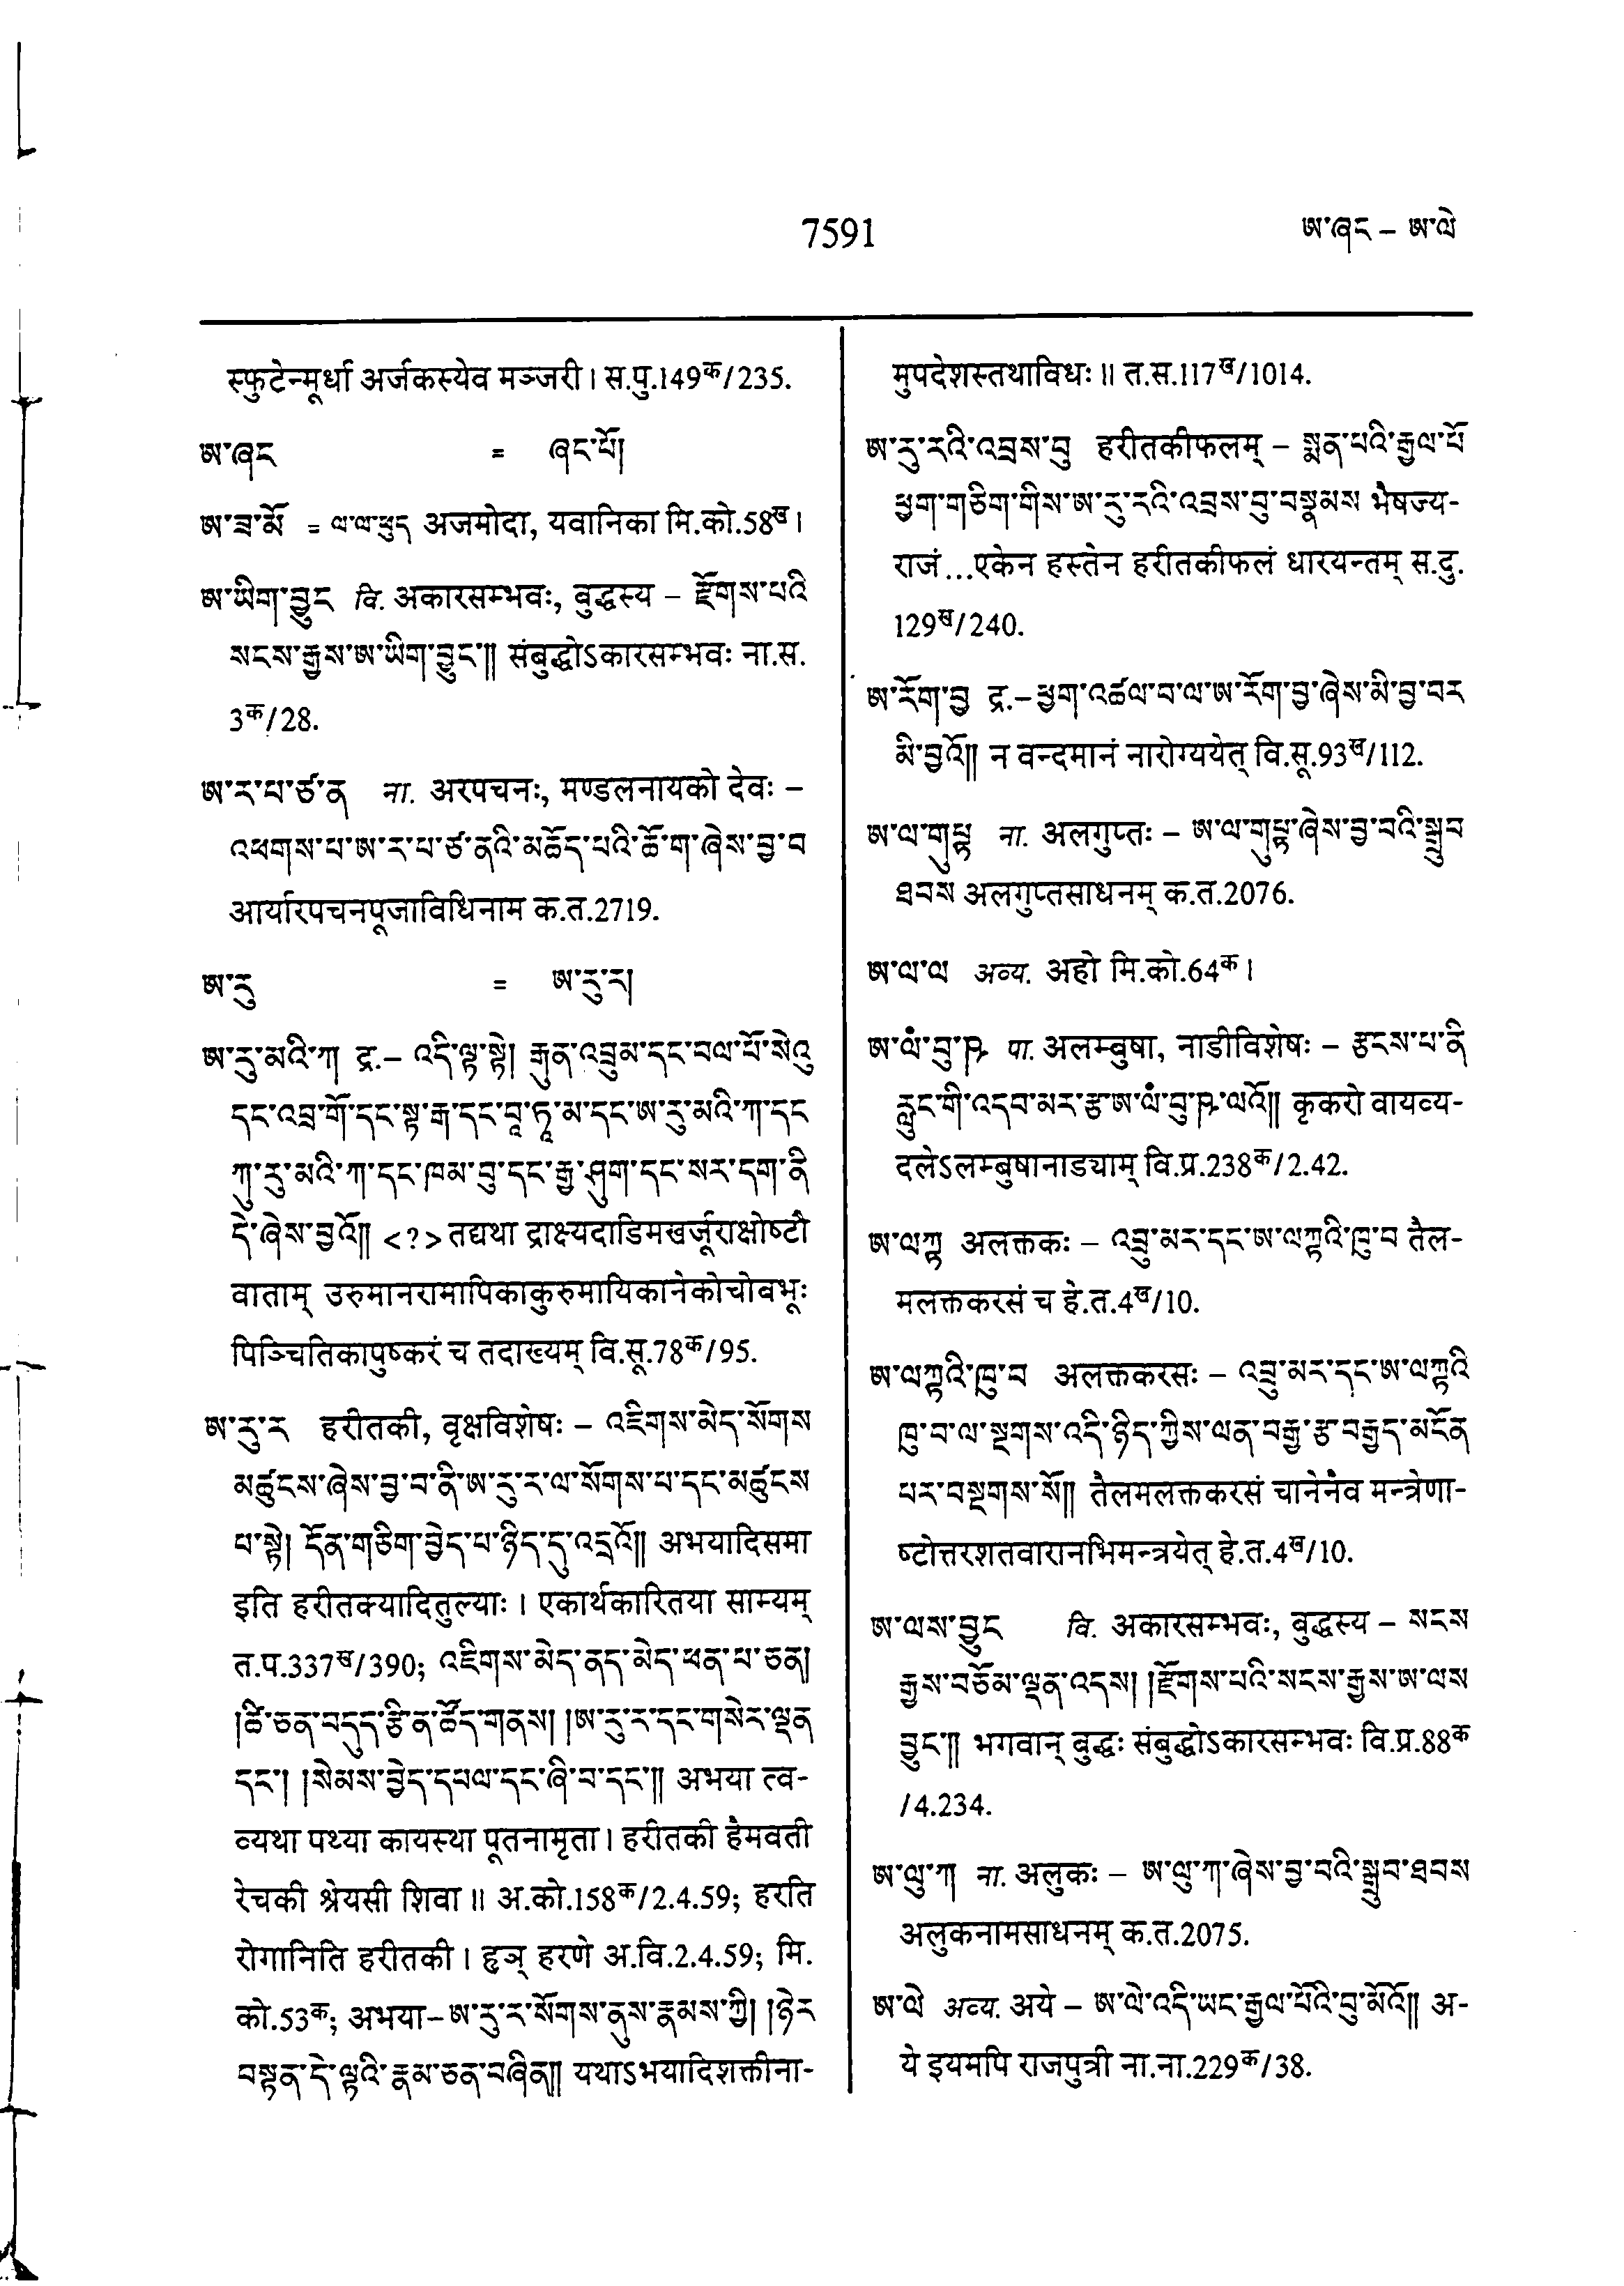 7591
ཨ་ཞང – ཨ་ལེ
स्फुटेन्मूर्धा अर्जकस्येव मञ्जरी। स.पु.149क/235.
ཨ་ཞང = ཞང་པོ།
ཨ་ཟ་མོ = ལ་ལ་ཕུད अजमोदा, यवानिका मि.को.58ख।
ཨ་ཡིག་བྱུང वि. अकारसम्भवः, बुद्धस्य – རྫོགས་པའི
སངས་རྒྱས་ཨ་ཡིག་བྱུང་༎ संबुद्धोऽकारसम्भवः ना.स.
3क/28.
ཨ་ར་པ་ཙ་ན ना. अरपचनः, मण्डलनायको देवः –
འཕགས་པ་ཨ་ར་པ་ཙ་ནའི་མཆོད་པའི་ཆོ་ག་ཞེས་བྱ་བ
आर्यारपचनपूजाविधिनाम क.त.2719.
ཨ་རུ = ཨ་རུ་ར།
ཨ་རུ་མའི་ཀ द्र.– འདི་ལྟ་སྟེ། རྒུན་འབྲུམ་དང་བལ་པོ་སེའུ
དང་འབྲ་གོ་དང་སྟ་རྒ་དང་བཱ་ཏཱ་མ་དང་ཨ་རུ་མའི་ཀ་དང
ཀུ་རུ་མའི་ཀ་དང་ཁམ་བུ་དང་རྒྱ་ཤུག་དང་སར་དག་ནི
དེ་ཞེས་བྱའོ༎ <?> तद्यथा द्राक्ष्यदाडिमखर्जूराक्षोष्टौ
वाताम् उरुमानरामापिकाकुरुमायिकानेकोचोवभूः
पिञ्चितिकापुष्करं च तदाख्यम् वि.सू.78क/95.
ཨ་རུ་ར हरीतकी, वृक्षविशेषः – འཇིགས་མེད་སོགས
མཚུངས་ཞེས་བྱ་བ་ནི་ཨ་རུ་ར་ལ་སོགས་པ་དང་མཚུངས
པ་སྟེ། དོན་གཅིག་བྱེད་པ་ཉིད་དུ་འདྲའོ༎ अभयादिसमा
इति हरीतक्यादितुल्याः। एकार्थकारितया साम्यम्
त.प.337ख/390; འཇིགས་མེད་ནད་མེད་ཕན་པ་ཅན།
།ཚེ་ཅན་བདུད་རྩི་ན་ཚོད་གནས། །ཨ་རུ་ར་དང་གསེར་ལྡན
དང་། །སེམས་བྱེད་དཔལ་དང་ཞི་བ་དང་༎ अभया त्व-
व्यथा पथ्या कायस्था पूतनामृता। हरीतकी हैमवती
रेचकी श्रेयसी शिवा॥ अ.को.158क/2.4.59; हरति
रोगानिति हरीतकी। हृञ् हरणे अ.वि.2.4.59; मि.
को.53क; अभया–ཨ་རུ་ར་སོགས་ནུས་རྣམས་ཀྱི། །ཉེར
བསྟན་དེ་ལྟའི་རྣམ་ཅན་བཞིན༎ यथाऽभयादिशक्तीना-
मुपदेशस्तथाविधः॥ त.स.117ख/1014.
ཨ་རུ་རའི་འབྲས་བུ हरीतकीफलम् – སྨན་པའི་རྒྱལ་པོ
ཕྱག་གཅིག་གིས་ཨ་རུ་རའི་འབྲས་བུ་བསྣམས भैषज्य-
राजं...एकेन हस्तेन हरीतकीफलं धारयन्तम् स.दु.
129ख/240.
ཨ་རོག་བྱ द्र.–ཕྱག་འཚལ་བ་ལ་ཨ་རོག་བྱ་ཞེས་མི་བྱ་བར
མི་བྱའོ༎ न वन्दमानं नारोग्ययेत् वि.सू.93ख/112.
ཨ་ལ་གུཔྟ ना. अलगुप्तः – ཨ་ལ་གུཔྟ་ཞེས་བྱ་བའི་སྒྲུབ
ཐབས अलगुप्तसाधनम् क.त.2076.
ཨ་ལ་ལ अव्य. अहो मि.को.64क।
ཨ་ལཾ་བུ་ཥ पा. अलम्बुषा, नाडीविशेषः – རྩངས་པ་ནི
རླུང་གི་འདབ་མར་རྩ་ཨ་ལཾ་བུ་ཥ་ལའོ༎ कृकरो वायव्य-
दलेऽलम्बुषानाड्याम् वि.प्र.238क/2.42.
ཨ་ལཀྟ अलक्तकः – འབྲུ་མར་དང་ཨ་ལཀྟའི་ཁུ་བ तैल-
मलक्तकरसं च हे.त.4ख/10.
ཨ་ལཀྟའི་ཁུ་བ अलक्तकरसः – འབྲུ་མར་དང་ཨ་ལཀྟའི
ཁུ་བ་ལ་སྔགས་འདི་ཉིད་ཀྱིས་ལན་བརྒྱ་རྩ་བརྒྱད་མངོན
པར་བསྔགས་སོ༎ तैलमलक्तकरसं चानेनैव मन्त्रेणा-
ष्टोत्तरशतवारानभिमन्त्रयेत् हे.त.4ख/10.
ཨ་ལས་བྱུང वि. अकारसम्भवः, बुद्धस्य – སངས
རྒྱས་བཅོམ་ལྡན་འདས། །རྫོགས་པའི་སངས་རྒྱས་ཨ་ལས
བྱུང་༎ भगवान् बुद्धः संबुद्धोऽकारसम्भवः वि.प्र.88क
/4.234.
ཨ་ལུ་ཀ ना. अलुकः – ཨ་ལུ་ཀ་ཞེས་བྱ་བའི་སྒྲུབ་ཐབས
अलुकनामसाधनम् क.त.2075.
ཨ་ལེ अव्य. अये – ཨ་ལེ་འདི་ཡང་རྒྱལ་པོའི་བུ་མོའོ༎ अ-
ये इयमपि राजपुत्री ना.ना.229क/38.